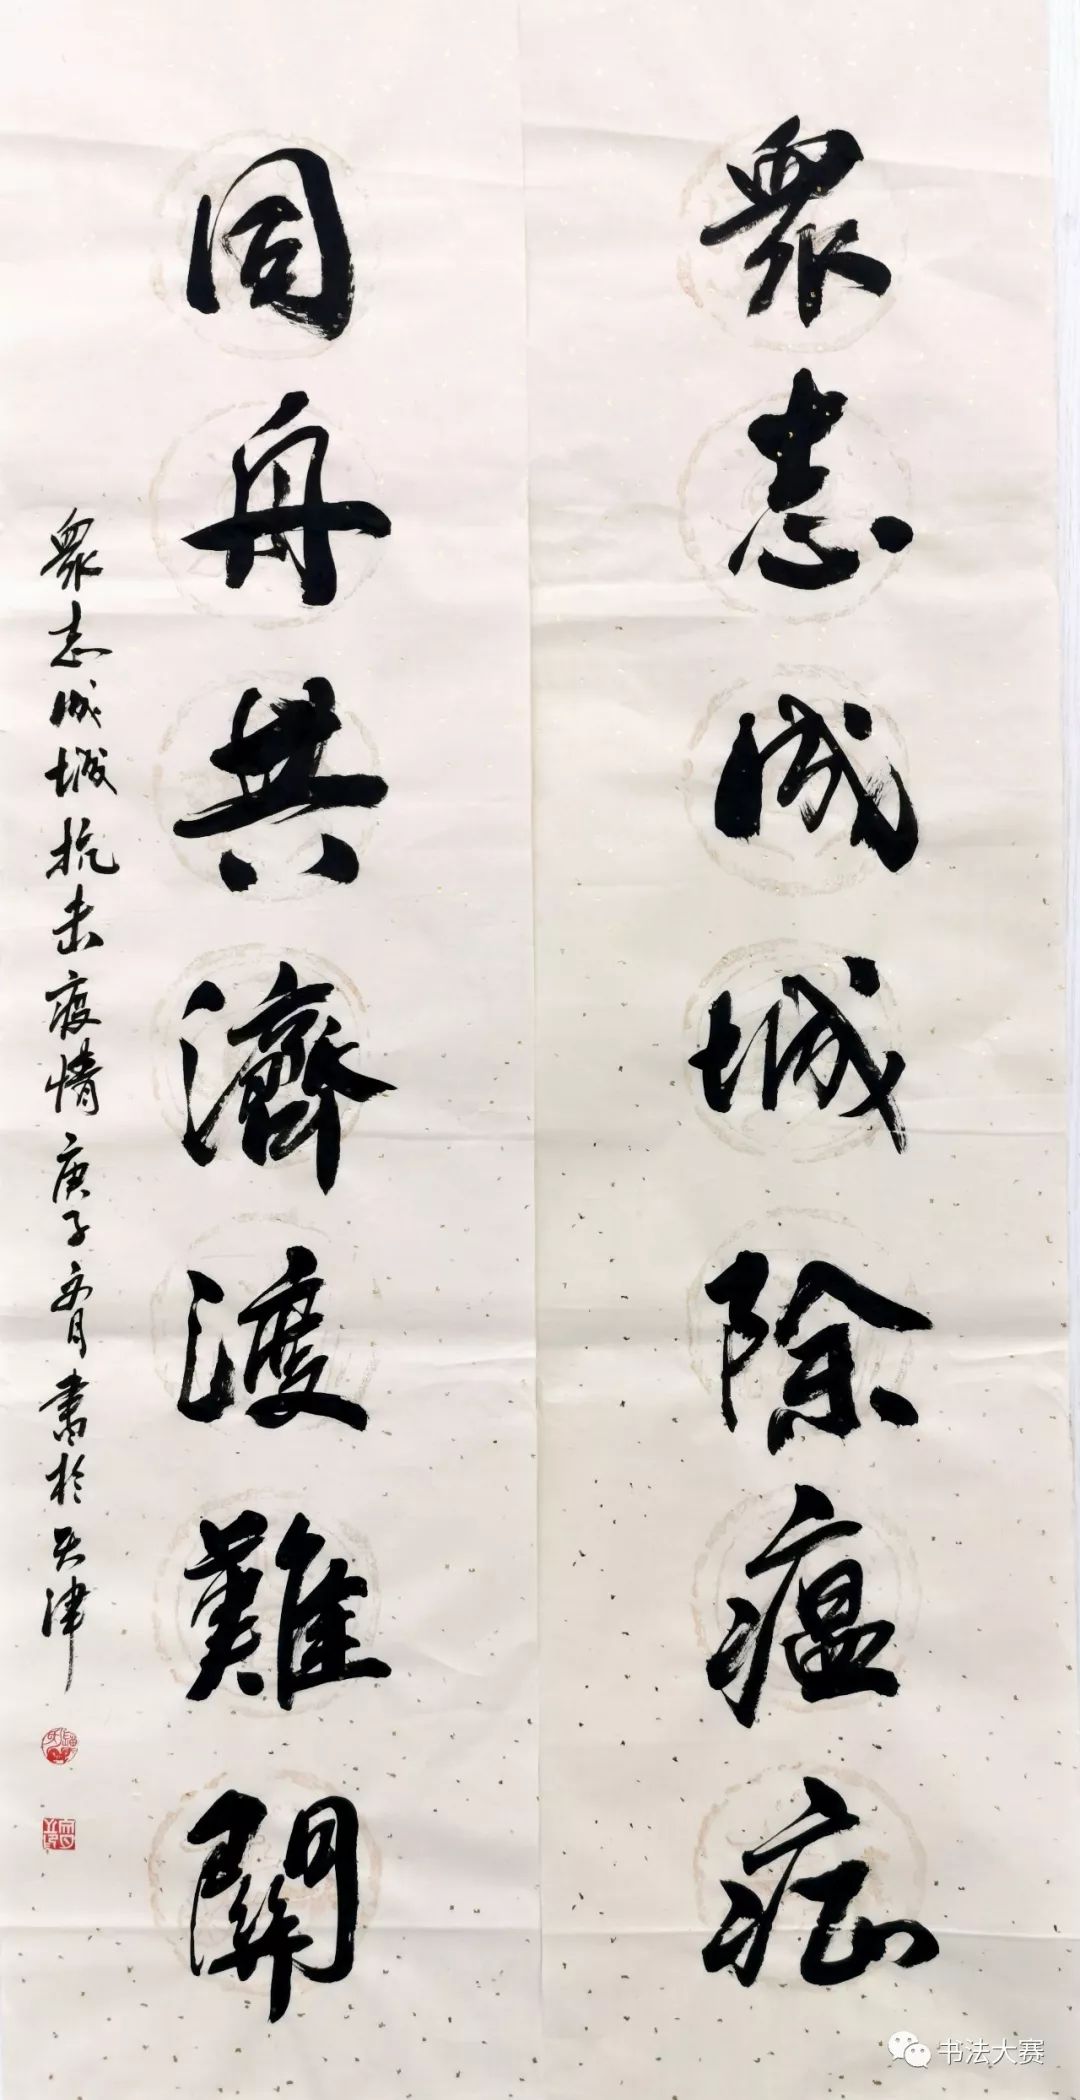 眾志成城除瘟症
同舟共濟渡難關
眾志成城抗击疫情庚子年二月書於天津
书法大赛